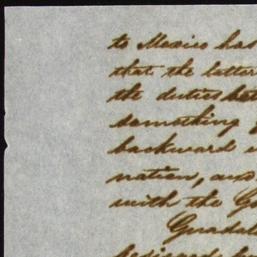 to Mexico has
that the latter
the duties
something
backward
nation, and
with the
Guadal